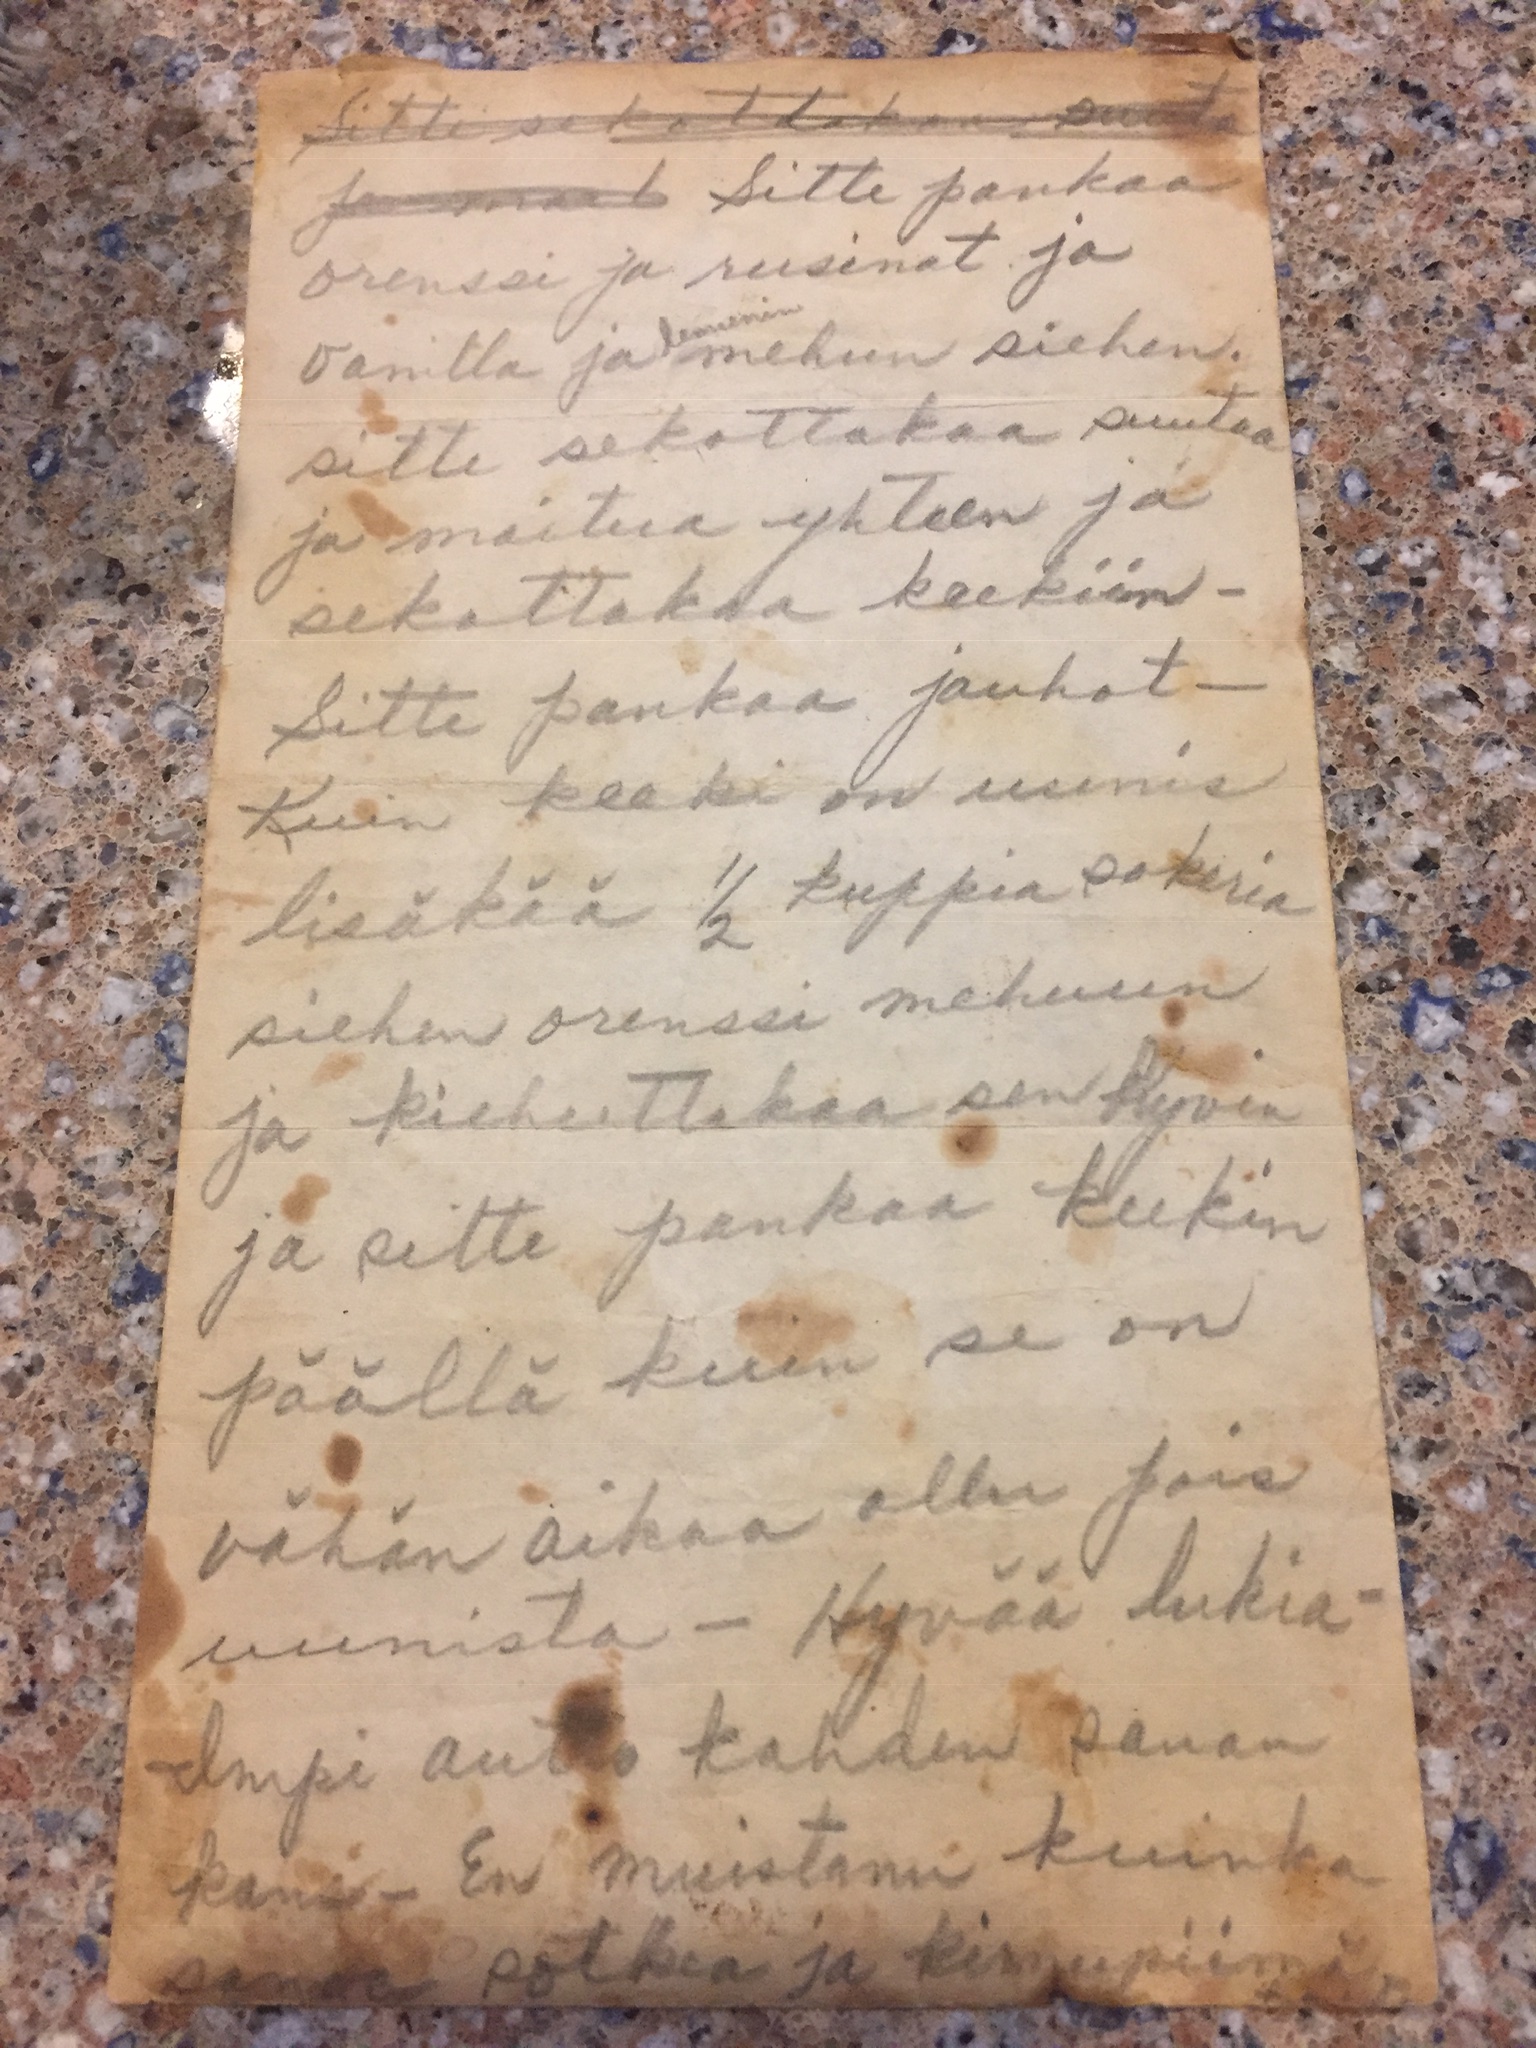 Sitte sekottakaa suuta
ja mait Sitte pankaa
orenssi ja rusinat ja
vanilla ja lemenin mehun siehen.
sitte sekottakaa suutaa
ja maitua yhteen ja
sekottakaa keekiin -
Sitte pankaa jauhot -
Kuin keeki on uunis
lisäkää 1/2 kuppia sokeria
siehen orenssi mehuun
ja kiehuttakaa sen hyvin
ja sitte pankaa keekin
päällä kuin se on
vähän aikaa ollu pois
uunista - Hyvää lukia -
Impi autto kahden sanan
kans - En muistanu kuinka
sanoa sotkea ja kirnupiimä